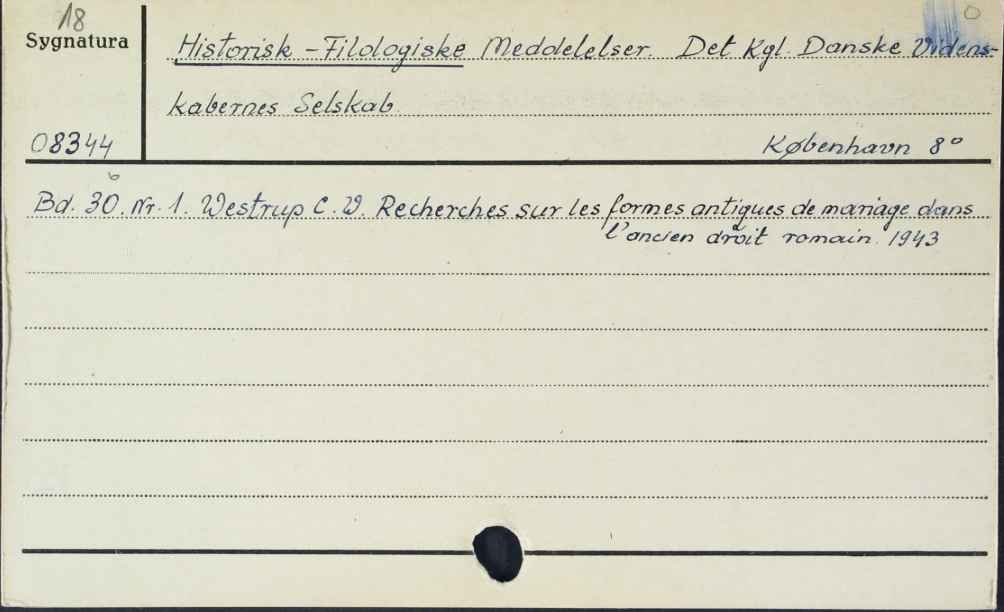 18
Sygnatura
Historisk - Filologiske Meddelelser. Det Kgl. Danske Videns-
kabernes Selskab.
08344
København 8°
Bd. 30. Nr. 1. Westrup C. W. Recherches sur les formes antiques de mariage dans
l'ancien droit romain. 1943